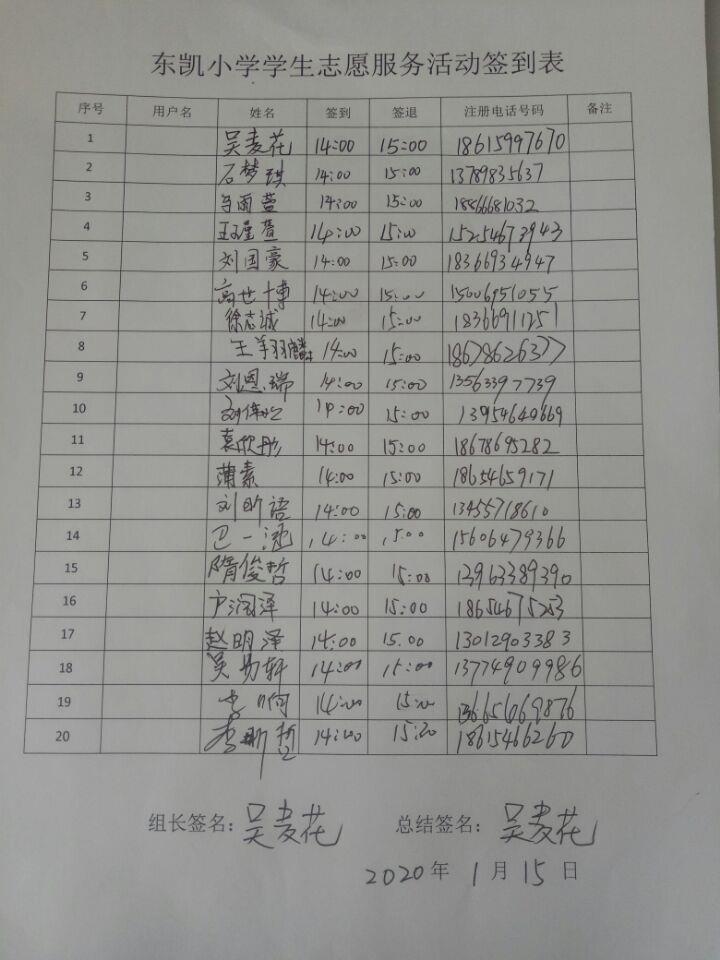 东凯小学学生志愿服务活动签到表
序号 用户名 姓名 签到 签退 注册电话号码 备注
1 吴麦花 14:00 15:00 18615997670
2 石梦琪 14:00 15:00 13789835637
3 雨萱 14:00 15:00 18866681032
4 14:00 15:00 15254673943
5 刘国豪 14:00 15:00 18366934947
6 高世博 14:00 15:00 15006951055
7 徐志诚 14:00 15:00 18366911251
8 王羽麟 14:00 15:00 18678626377
9 刘恩瑞 14:00 15:00 13563397739
10 14:00 15:00 13954640669
11 袁欣彤 14:00 15:00 18678695282
12 蒲素 14:00 15:00 18654659171
13 刘昕语 14:00 15:00 13455718610
14 卫一涵 14:00 15:00 15606479366
15 隋俊哲 14:00 15:00 13963389390
16 卢润泽 14:00 15:00 18654675253
17 赵明泽 14:00 15.00 13012903383
18 吴易轩 14:00 15:00 13774909986
19 14:00 15:00 13665669876
20 李昕哲 14:00 15:00 18615466260
组长签名: 吴麦花 总结签名: 吴麦花
2020 年 1 月 15 日